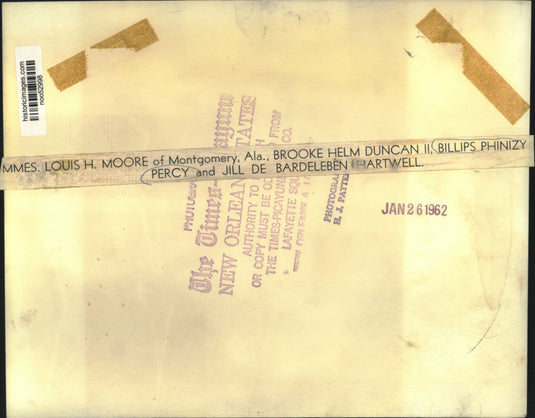 historicimages.com
MMES. LOUIS H. MOORE of Montgomery, Ala., BROOKE HELM DUNCAN II, BILLIPS PHINIZY
PERCY and JILL DE BARDELEBEN HARTWELL.
JAN 26 1962
The Times-
NEW ORLEAN STATES
AUTHORITY TO FROM
OR COPY MUST BE CO.
THE TIMES-PICAYUN
LAFAYETTE SQU
H. J. PATTE